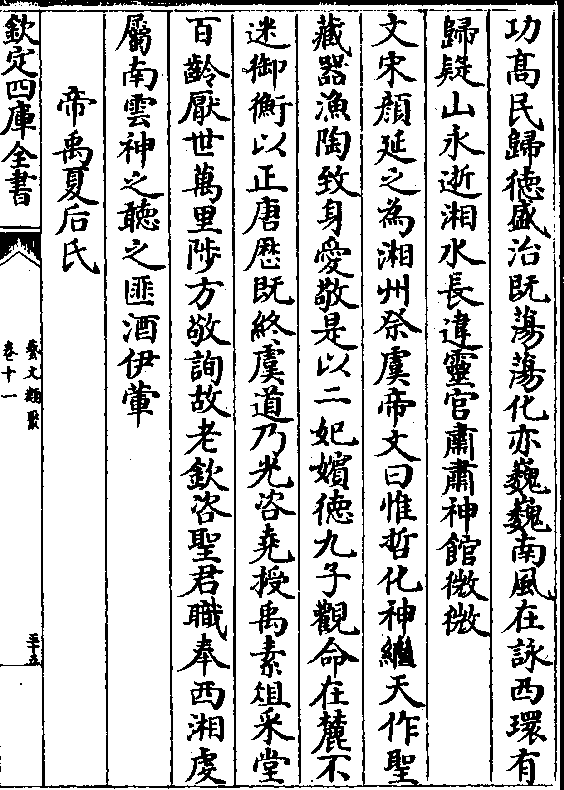 功髙民歸徳盛治既蕩蕩化亦巍巍南風在詠西環有
歸疑山永逝湘水長違靈官肅肅神館微微
文宋顔延之為湘州祭虞帝文曰惟哲化神繼天作聖
藏器漁陶致身愛敬是以二妃嬪徳九子觀命在麓不
迷御衡以正唐厯既終虞道乃光咨堯授禹素俎采堂
百齡厭世萬里陟方敬詢故老欽咨聖君職奉西湘虔
屬南雲神之聽之匪酒伊葷
帝禹夏后氏
欽定四庫全書
藝文類聚
卷十一
三十五